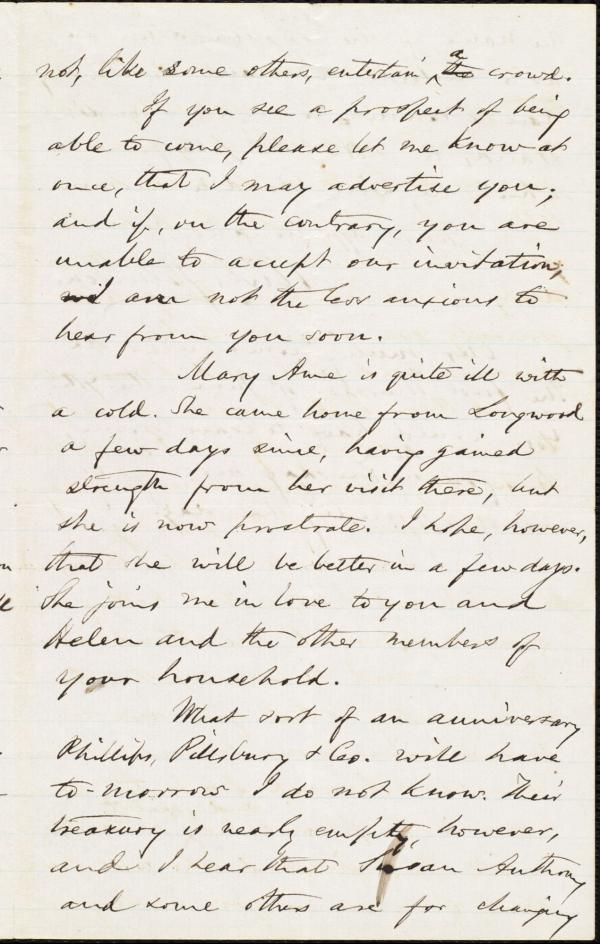 not, like some others, entertain a the crowd.
If you see a prospect of being
able to come, please let me know at
once, that I may advertise you;
and if, on the contrary, you are
unable to accept our invitation,
I am not the less anxious to
hear from you soon.
Mary Anne is quite ill with
a cold. She came home from Longwood
a few days since, having gained
strength from her visit there, but
she is now prostrate. I hope, however,
that she will be better in a few days.
She joins me in love to you and
Helen and the other members of
your household.
What sort of an anniversary
Phillips, Pillsbury & Co. will have
to-morrow I do not know. Their
treasury is nearly empty, however,
and I hear that Susan Anthony
and some others are for changing